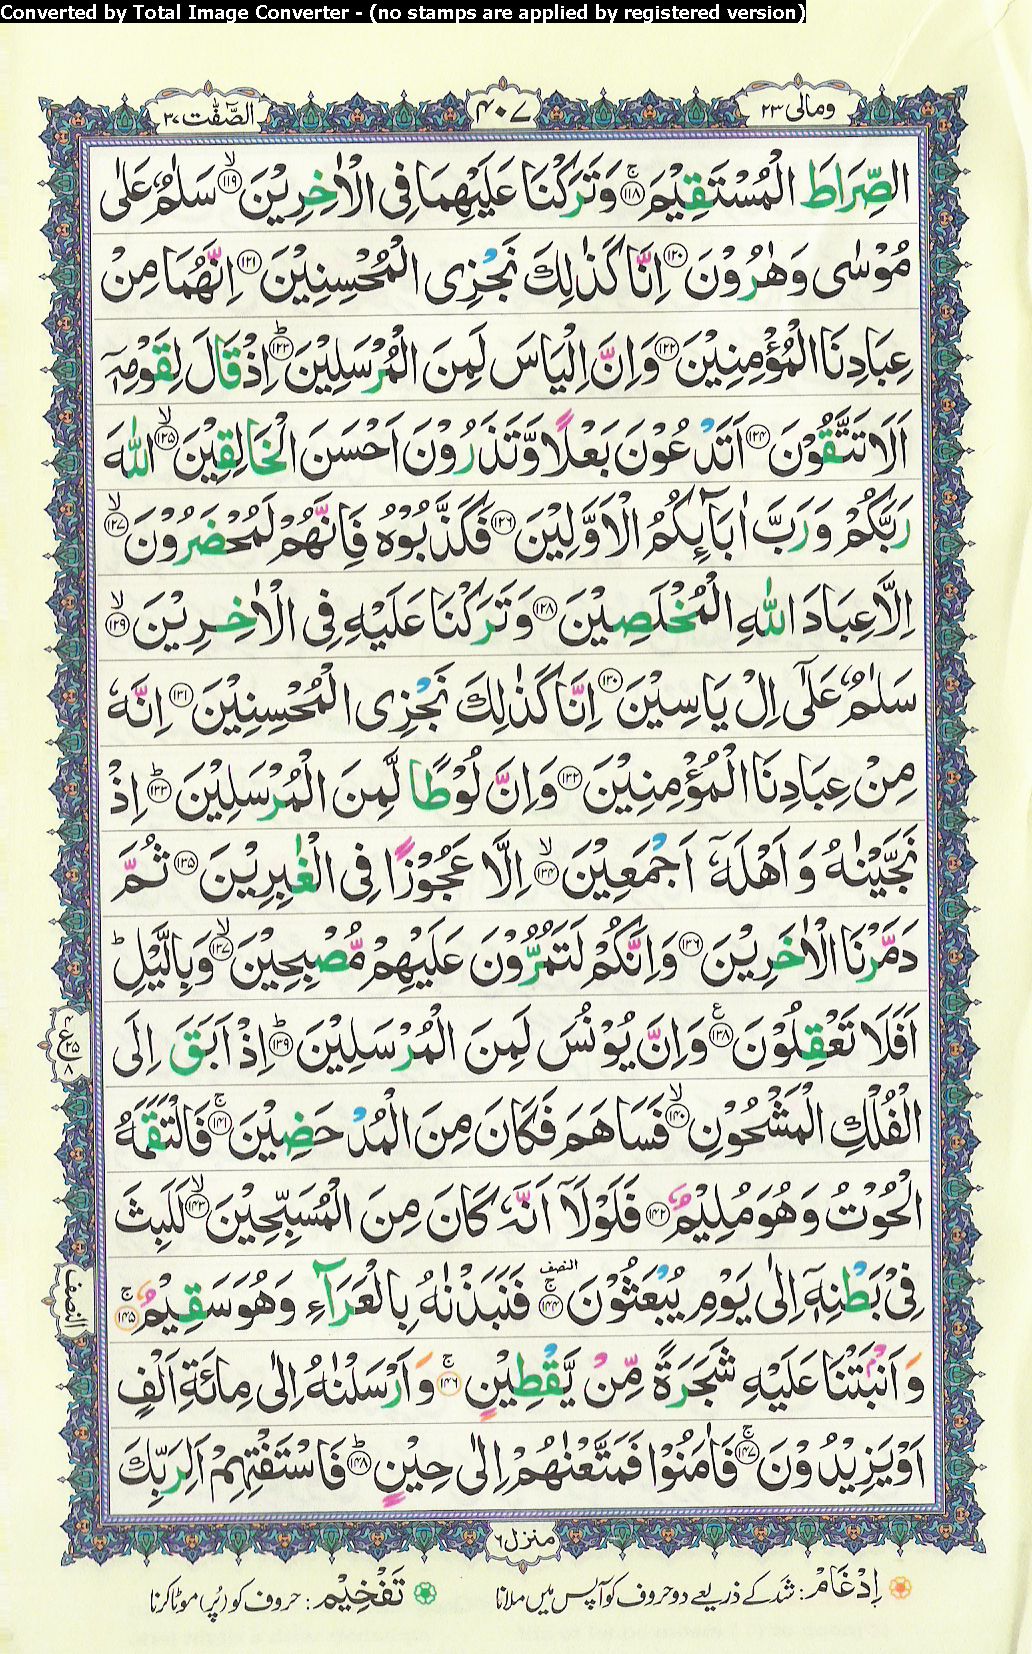 Converted by Total Image Converter - (no stamps are applied by registered version)
ومالی ۲۳
۴۰۷
الصّٰٓفّٰت ۳۷
الصِّرَاطَ الْمُسْتَقِيْمَ ۝۱۱۸ۚ وَتَرَكْنَا عَلَيْهِمَا فِى الْاٰخِرِيْنَ ۝۱۱۹ۙ سَلٰمٌ عَلٰى
مُوْسٰى وَهٰرُوْنَ ۝۱۲۰ اِنَّا كَذٰلِكَ نَجْزِى الْمُحْسِنِيْنَ ۝۱۲۱ اِنَّهُمَا مِنْ
عِبَادِنَا الْمُؤْمِنِيْنَ ۝۱۲۲ وَاِنَّ اِلْيَاسَ لَمِنَ الْمُرْسَلِيْنَ ۝۱۲۳ؕ اِذْ قَالَ لِقَوْمِهٖۤ
اَلَا تَتَّقُوْنَ ۝۱۲۴ اَتَدْعُوْنَ بَعْلًا وَّتَذَرُوْنَ اَحْسَنَ الْخَالِقِيْنَ ۝۱۲۵ۙ اللّٰهَ
رَبَّكُمْ وَرَبَّ اٰبَآئِكُمُ الْاَوَّلِيْنَ ۝۱۲۶ فَكَذَّبُوْهُ فَاِنَّهُمْ لَمُحْضَرُوْنَ ۝۱۲۷ۙ
اِلَّا عِبَادَ اللّٰهِ الْمُخْلَصِيْنَ ۝۱۲۸ وَتَرَكْنَا عَلَيْهِ فِى الْاٰخِرِيْنَ ۝۱۲۹ۙ
سَلٰمٌ عَلٰٓى اِلْ يَاسِيْنَ ۝۱۳۰ اِنَّا كَذٰلِكَ نَجْزِى الْمُحْسِنِيْنَ ۝۱۳۱ اِنَّهٗ
مِنْ عِبَادِنَا الْمُؤْمِنِيْنَ ۝۱۳۲ وَاِنَّ لُوْطًا لَّمِنَ الْمُرْسَلِيْنَ ۝۱۳۳ؕ اِذْ
نَجَّيْنٰهُ وَاَهْلَهٗٓ اَجْمَعِيْنَ ۝۱۳۴ۙ اِلَّا عَجُوْزًا فِى الْغٰبِرِيْنَ ۝۱۳۵ ثُمَّ
دَمَّرْنَا الْاٰخَرِيْنَ ۝۱۳۶ وَاِنَّكُمْ لَتَمُرُّوْنَ عَلَيْهِمْ مُّصْبِحِيْنَ ۝۱۳۷ۙ وَبِالَّيْلِ ؕ
اَفَلَا تَعْقِلُوْنَ ۝۱۳۸ۧ وَاِنَّ يُوْنُسَ لَمِنَ الْمُرْسَلِيْنَ ۝۱۳۹ؕ اِذْ اَبَقَ اِلَى
الْفُلْكِ الْمَشْحُوْنِ ۝۱۴۰ۙ فَسَاهَمَ فَكَانَ مِنَ الْمُدْحَضِيْنَ ۝۱۴۱ۚ فَالْتَقَمَهُ
الْحُوْتُ وَهُوَ مُلِيْمٌ ۝۱۴۲ فَلَوْلَاۤ اَنَّهٗ كَانَ مِنَ الْمُسَبِّحِيْنَ ۝۱۴۳ۙ لَلَبِثَ
فِىْ بَطْنِهٖۤ اِلٰى يَوْمِ يُبْعَثُوْنَ ۝۱۴۴ۚ النصف فَنَبَذْنٰهُ بِالْعَرَآءِ وَهُوَ سَقِيْمٌ ۝۱۴۵ۚ
وَاَنْۢبَتْنَا عَلَيْهِ شَجَرَةً مِّنْ يَّقْطِيْنٍ ۝۱۴۶ۚ وَاَرْسَلْنٰهُ اِلٰى مِائَةِ اَلْفٍ
اَوْ يَزِيْدُوْنَ ۝۱۴۷ۚ فَاٰمَنُوْا فَمَتَّعْنٰهُمْ اِلٰى حِيْنٍ ۝۱۴۸ؕ فَاسْتَفْتِهِمْ اَلِرَبِّكَ
النصف
منزل ۶
اِدْغَامْ : شد کے ذریعے دو حروف کو آپس میں ملانا
تَفْخِیْمْ : حروف کو (پُر) موٹا کرنا